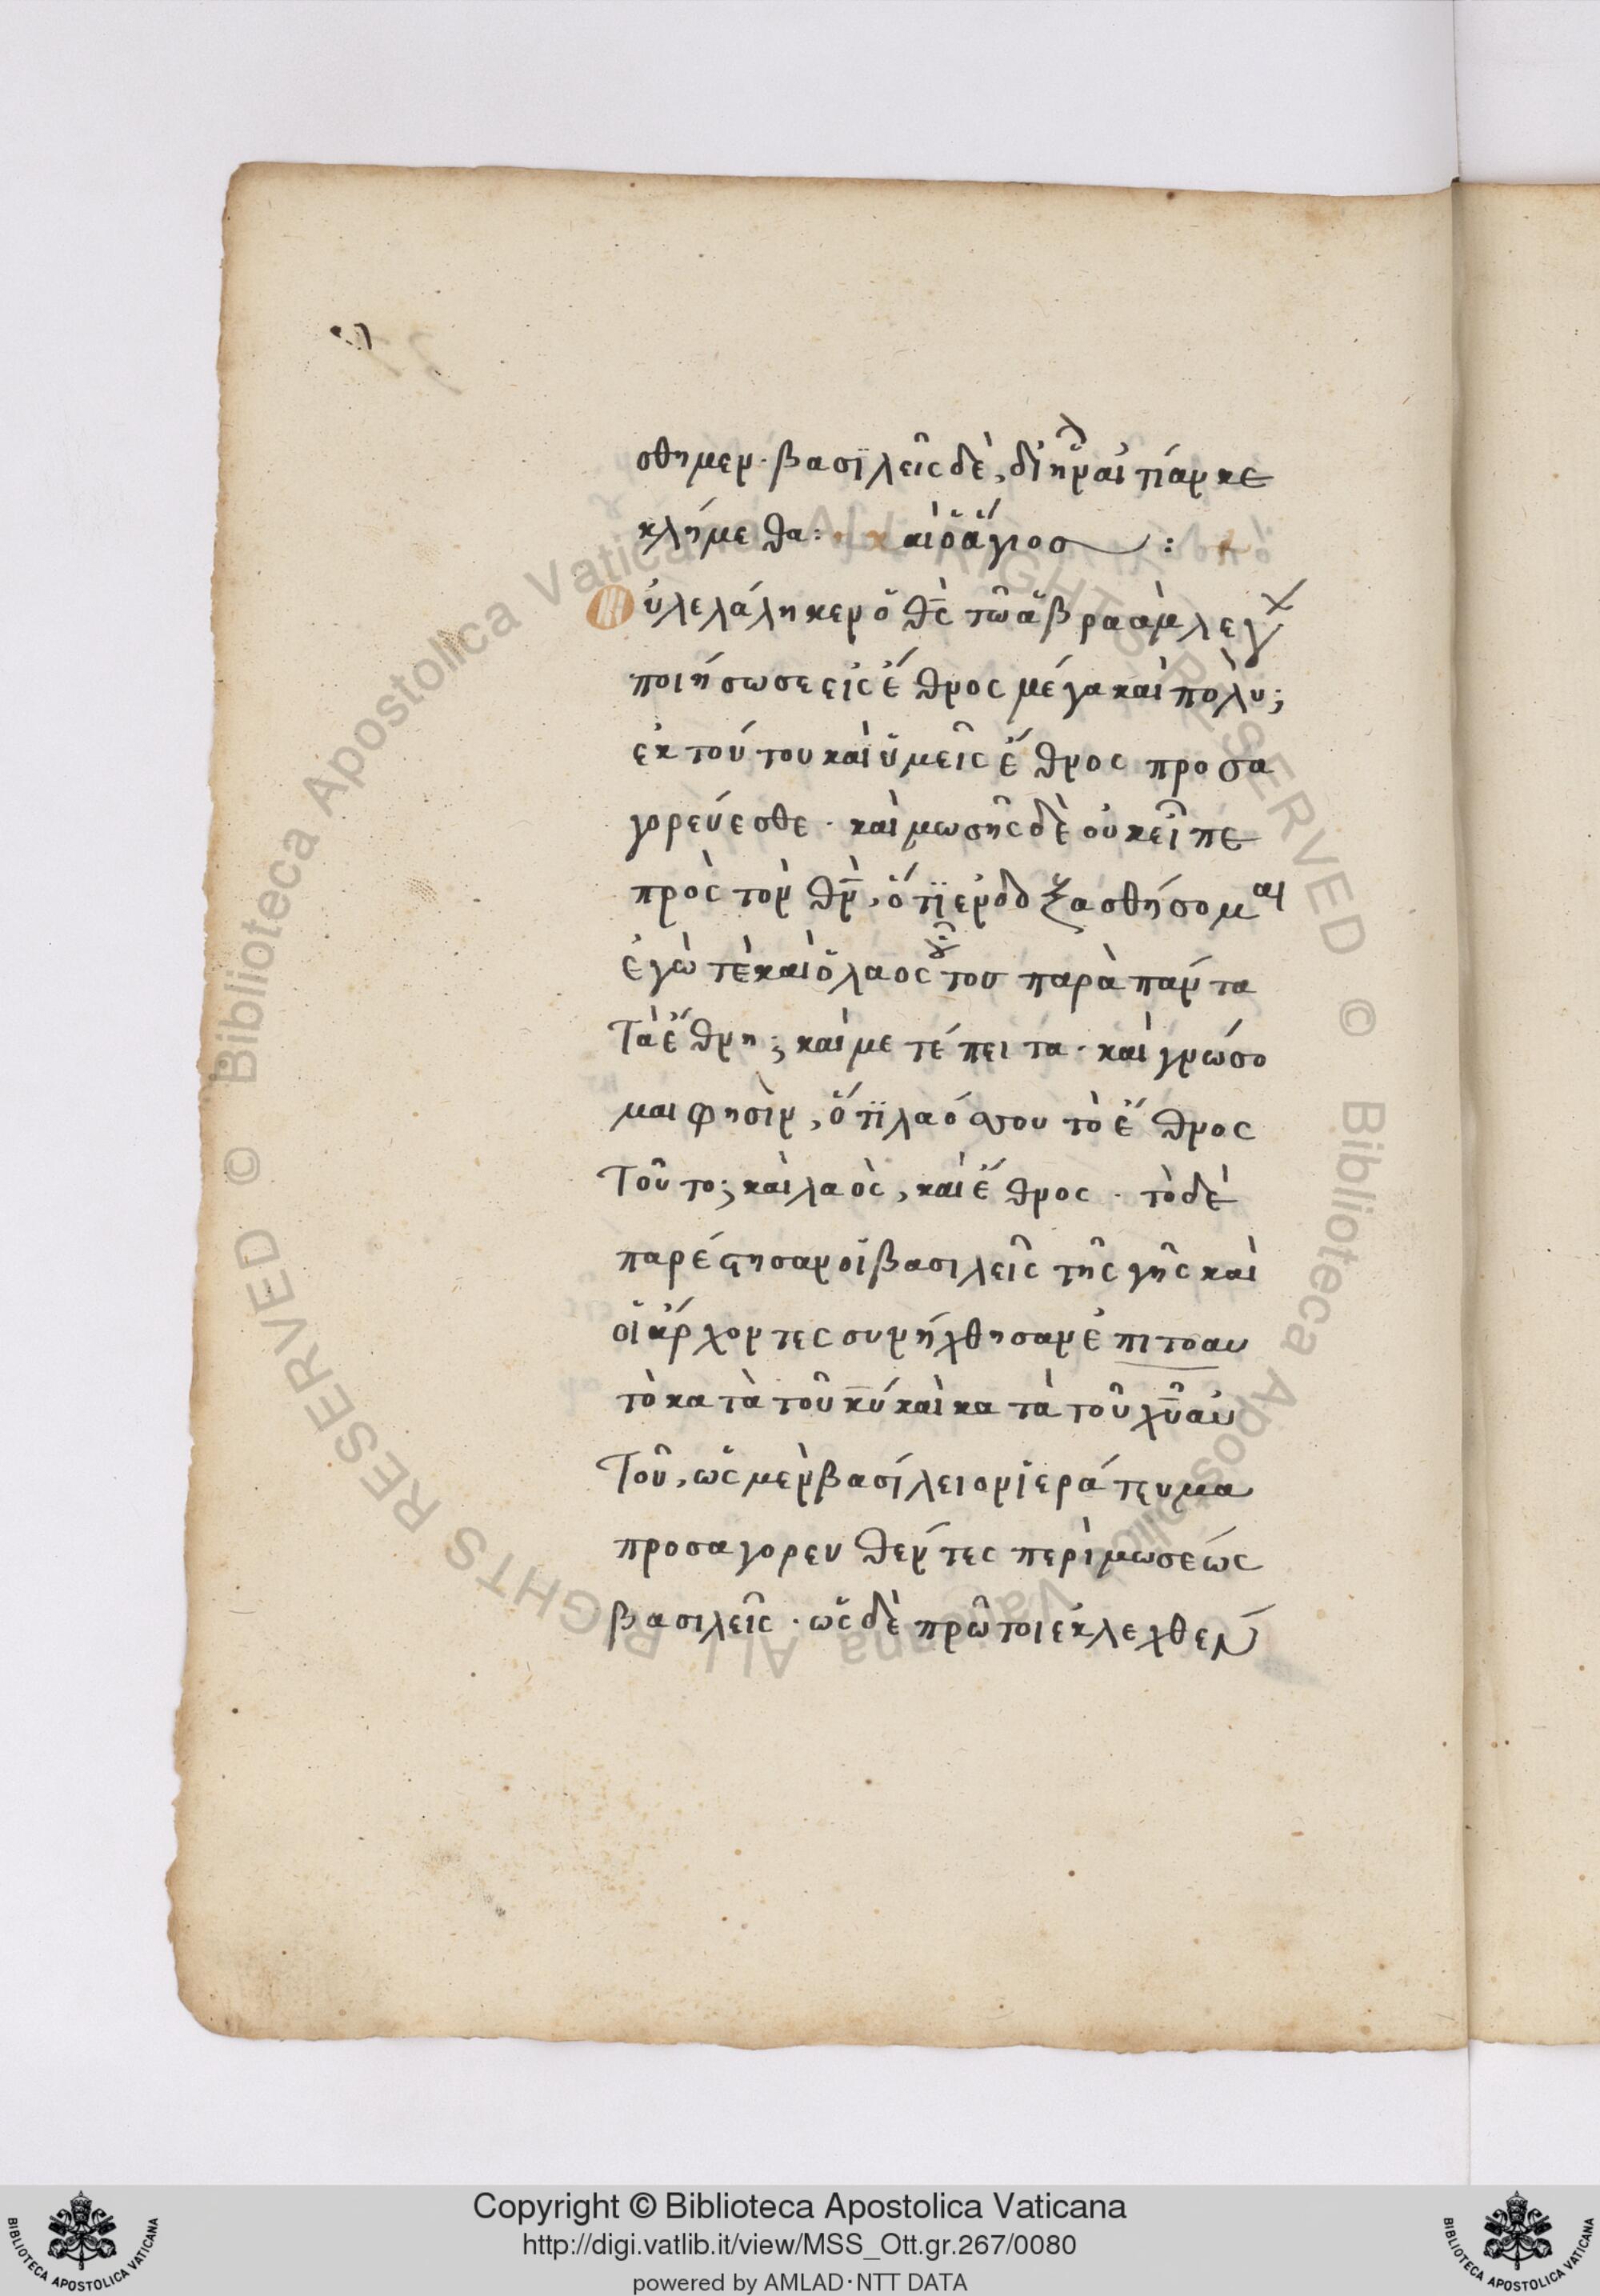 σθημεν· βασϊλεῖς δὲ, δι ἣν αἰτίαν κε
κλήμεθα: καὶ ὁ ἅγιος :
ὐ λελάληκεν ὁ θ̅ς̅ τῶ ἀβραὰμ λεγ
ποιήσω σε εἰς ἔθνος μέγα καὶ πολὺ;
ἐκ τούτου καὶ ὑμεῖς ἔθνος προσα
γορεύεσθε· καὶ μωσῆς δὲ οὐκ εἶπε
πρὸς τὸν θ̅ν̅, ὅτϊ ενδοξασθήσομαι
ἐγὼ τὲ καὶ ὁ λαος του παρὰ πάντα
τὰ ἔθνη; καὶ μετέπειτα· καὶ γνώσο
μαι φησὶν, ὅτϊ λαός σου τὸ ἔθνος
τοῦτο; καὶ λαὸς, καὶ ἔθνος· τὸ δὲ
παρέστησαν οἱ βασιλεῖς τῆς γῆς καὶ
οἱ ἄρχοντες συνήχθησαν ἐπιτοαυ
τὸ κατὰ τοῦ κ̅υ̅ καὶ κατὰ τοῦ χ̅υ̅ αὐ
τοῦ, ὡς μὲν βασίλειον ἱεράτευμα
προσαγορευθέντες περὶ μωσέως
βασιλεῖς· ὡς δὲ πρῶτοι ἐκλεχθέν
Copyright © Biblioteca Apostolica Vaticana
http://digi.vatlib.it/view/MSS_Ott.gr.267/0080
powered by AMLAD·NTT DATA